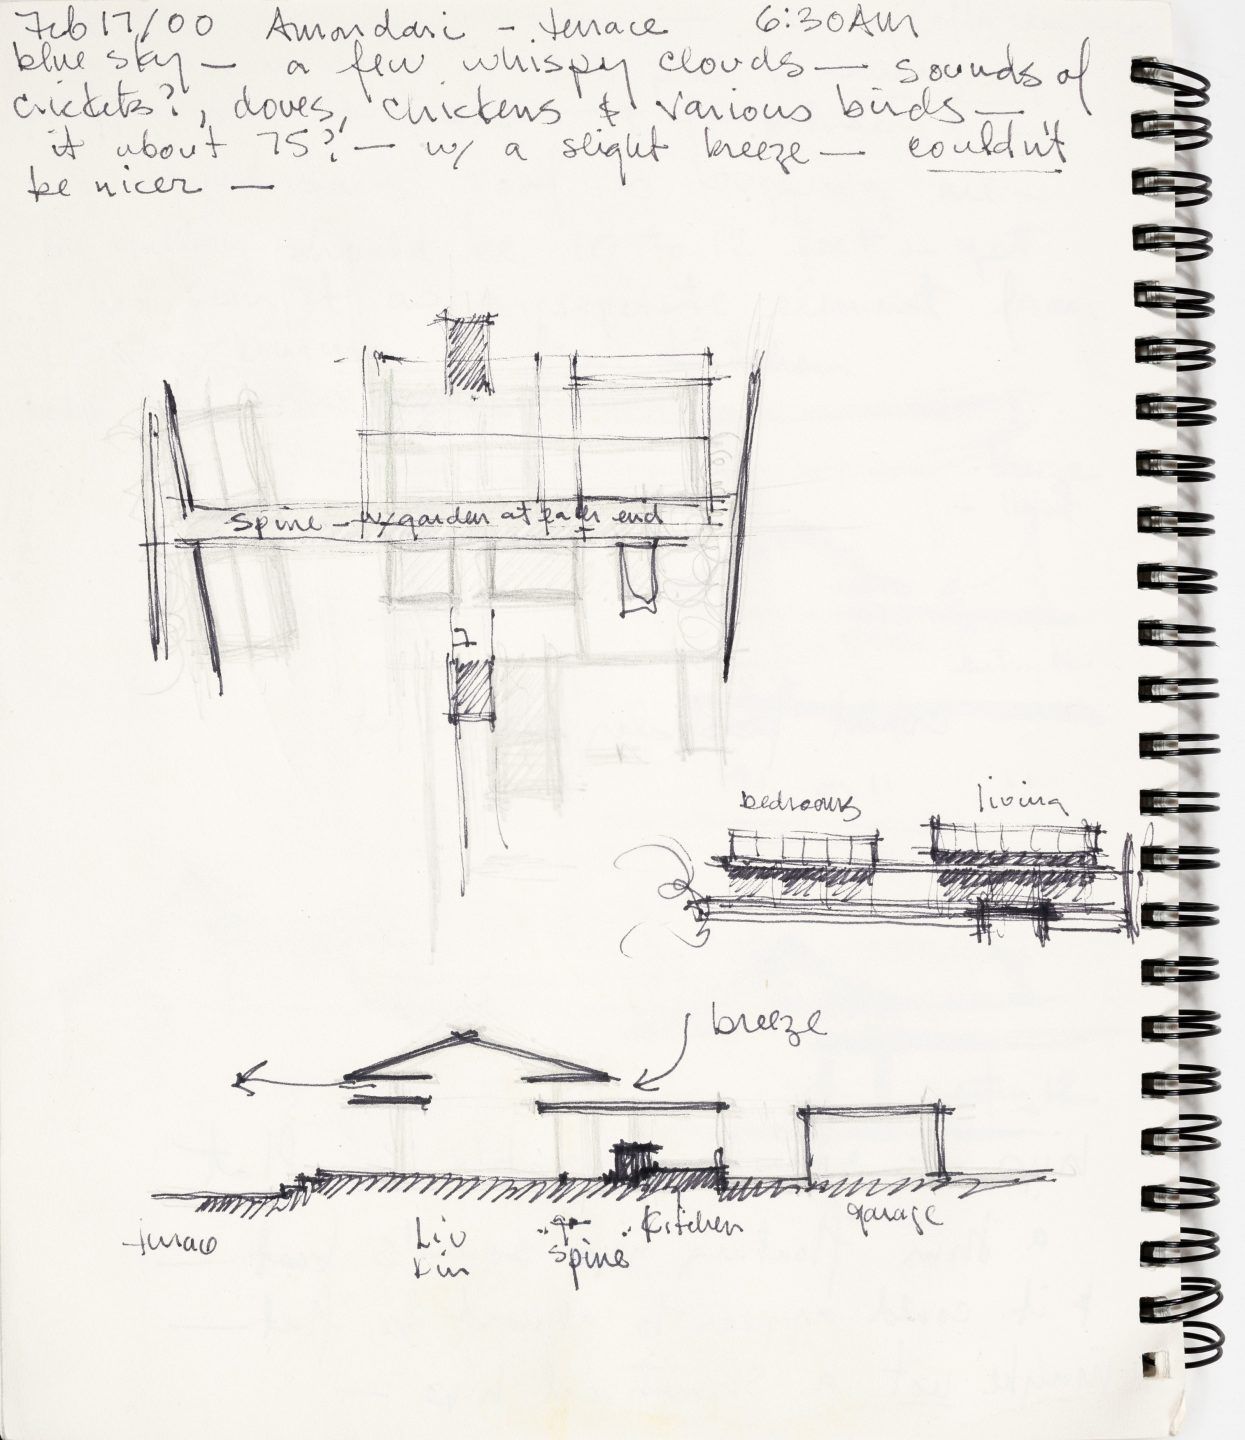 Feb 17/00 Amandari - terrace 6:30AM
blue sky — a few whispy clouds — sounds of
crickets?, doves, chickens & various birds —
it about 75? — w/ a slight breeze — couldn't
be nicer —
Spine - w/ garden at each end
bedrooms
living
breeze
terrace
Liv
Din
spine
Kitchen
garage